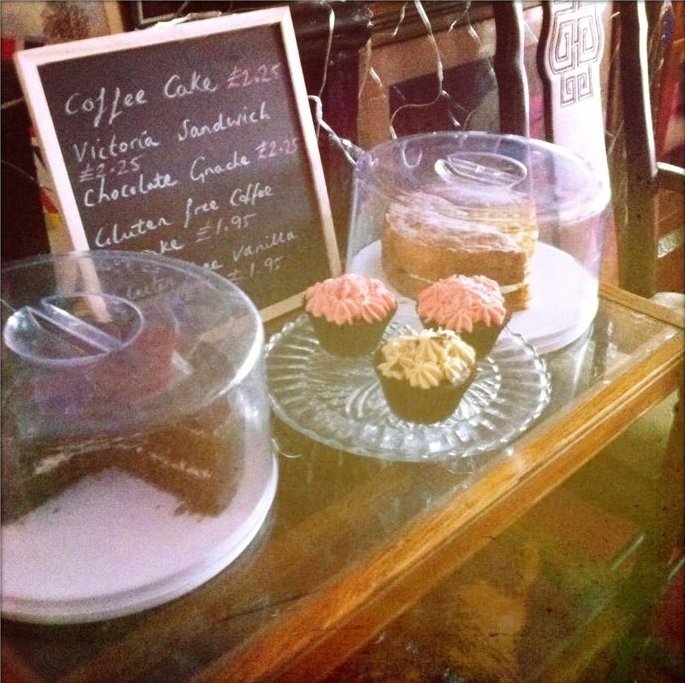 Coffee Cake £2.25
Victoria Sandwich
£2.25
Chocolate Gnache £2.25
Gluten free Coffee
Cake £1.95
free Vanilla
£1.95